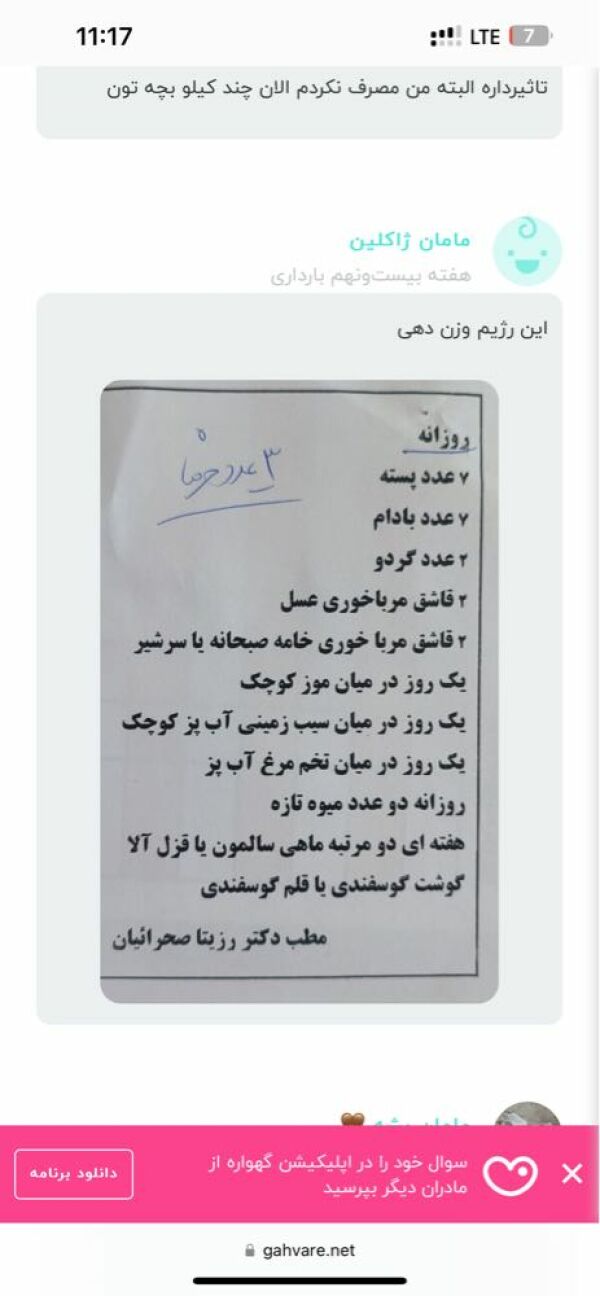 11:17
LTE
7
تاثیرداره البته من مصرف نکردم الان چند کیلو بچه تون
مامان ژاکلین
هفته بیست‌ونهم بارداری
این رژیم وزن دهی
روزانه
۳ عدد خرما
۷ عدد پسته
۷ عدد بادام
۲ عدد گردو
۲ قاشق مرباخوری عسل
۲ قاشق مربا خوری خامه صبحانه یا سرشیر
یک روز در میان موز کوچک
یک روز در میان سیب زمینی آب پز کوچک
یک روز در میان تخم مرغ آب پز
روزانه دو عدد میوه تازه
هفته ای دو مرتبه ماهی سالمون یا قزل آلا
گوشت گوسفندی یا قلم گوسفندی
مطب دکتر رزیتا صحرائیان
سوال خود را در اپلیکیشن گهواره از
مادران دیگر بپرسید
دانلود برنامه
gahvare.net